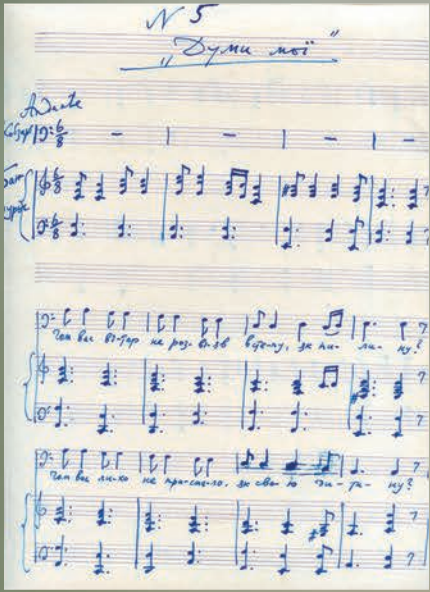 N 5
„Думи мої"
Andante
Кобзарь
Бан
дура
6/8
6/8
6/8
Чом вас ві-тер не роз-ві-яв в сте-пу, як пи- ли- ну?
Чом вас ли-хо не при-спа-ло, як сво- ю ди- ти- ну?